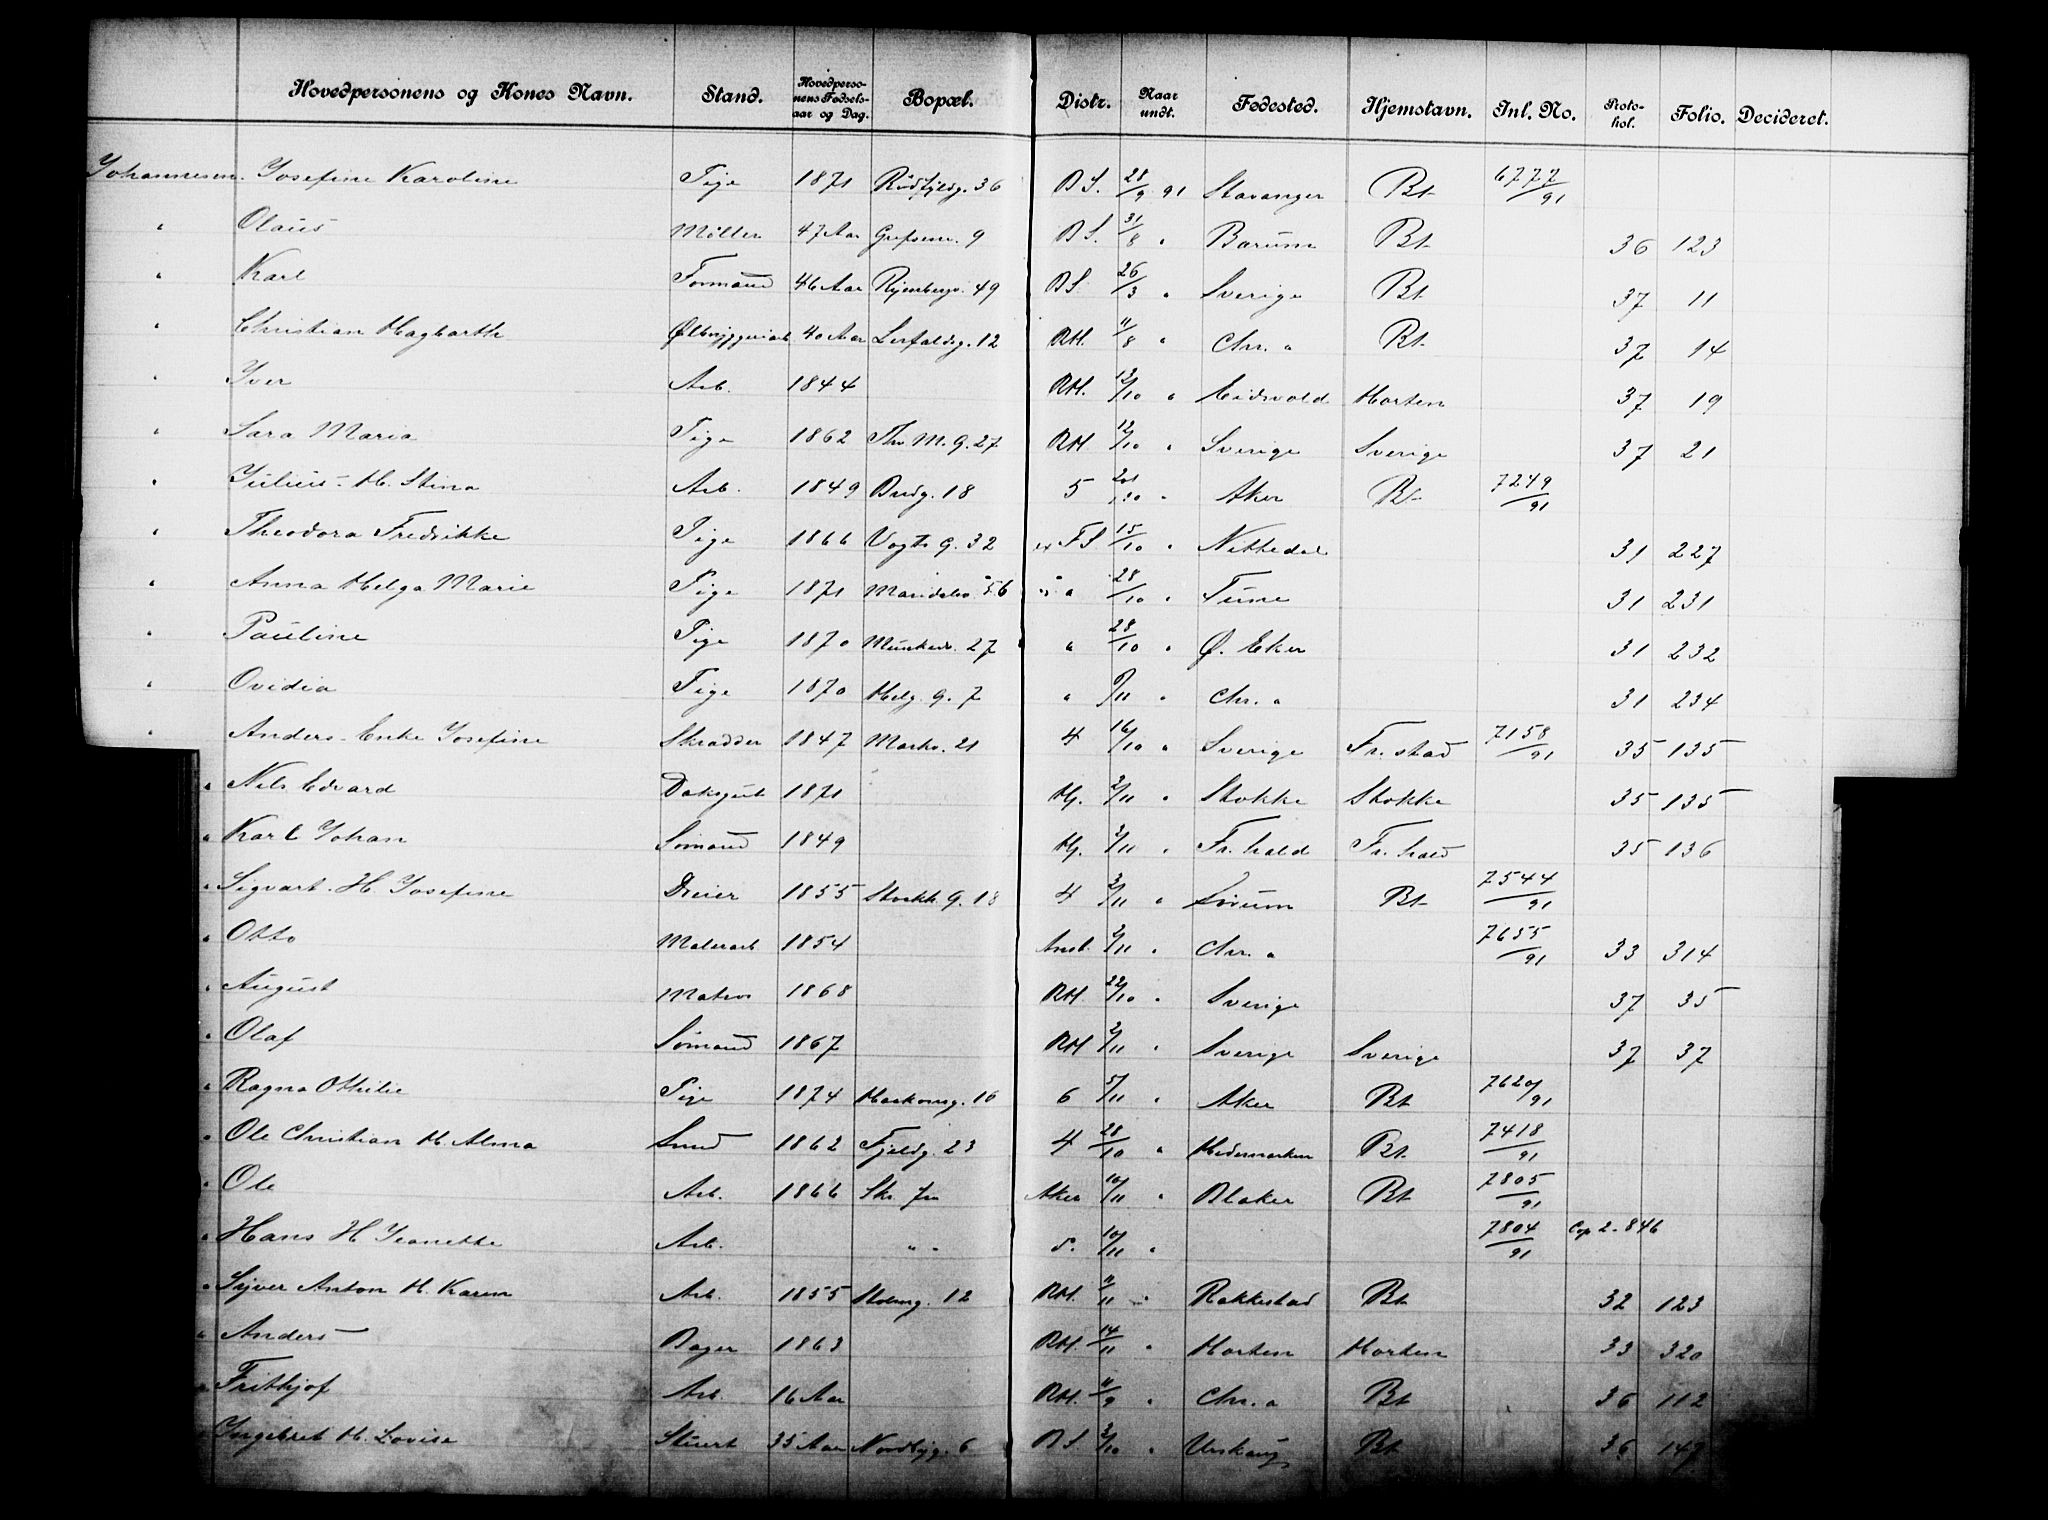 Hovedpersonens og Kones Navn. Stand. Hovedpersonens Fødselsaar og Dag. Bopæl. Distr. Naar undt. Fødested. Hjemstavn. Inl. No. Protokol. Folio. Decideret.
Johannesen. Josefine Karoline Pige 1871 36 B S. 28/9 91 Stavanger Bt 6777/91
" Olaus Møller 47 Aar Grefsenv. 9 B S. 31/8 " Bærum Bt 36 123
" Karl Formand 46 Aar Ryenbergv. 49 B S 26/3 " Sverige Bt 37 11
" Christian Hagbarth 40 Aar Lerfaldsg. 12 R H. 11/8 " Chr. a Bt 37 14
" Iver Arb. 1844 R H. 12/10 " Eidsvold Horten 37 19
" Sara Maria Pige 1862 Th. M. G. 27 R H. 12/10 " Sverige Sverige 37 21
" Julius - H. Stina Arb. 1849 Bredg. 18 5 " Aker Bt 7249/91
" Theodora Fredrikke Pige 1866 Vogts G. 32 F S 15/10 " Nittedal 31 227
" Anna Helga Marie Pige 1871 Maridalsv 56 " 28/10 " Tune 31 231
" Pauline Pige 1870 Munkedv. 27 " 28/10 " Ø. Eker 31 232
" Ovidia Pige 1870 Helg. G. 7 " 9/11 " Chr. a 31 234
" Anders - Enke Josefine Skrædder 1847 Markv. 21 4 16/10 " Sverige Fr. stad 7158/91 35 135
" Nils Edvard Dæksgut 1871 Hj. 2/11 " Stokke Stokke 35 135
" Karl Johan Sømand 1849 Hj. 2/11 " Fr. hald Fr. hald 35 136
" Sigvart - H. Josefine Dreier 1855 Stockh. G. 18 4 3/11 " Sørum Bt 7544/91
" Otto Malerarb. 1854 2/11 " Chr. a 7655/91 33 314
" August Matros 1868 R H. 22/10 " Sverige 37 35
" Olaf Sømand 1867 R H 2/11 " Sverige Sverige 37 37
" Ragna Othilie Pige 1874 Haakonsg. 16 6 5/11 " Aker Bt 7620/91
" Ole Christian H. Alma Smed 1862 Fjeldg. 23 4 28/10 " Hedemarken Bt 7418/91
" Ole Arb. 1866 Aker 10/11 " Blaker Bt 7805/91
" Hans H Jeanette Arb. " " d. 10/11 " 7804/91 Cop 2 - 846
" Syver Anton H. Karen Arb. 1855 Holmg. 12 R H. 11/11 " Rakkestad Bt 32 123
" Anders Bager 1863 R H. 14/11 " Horten Horten 33 320
" Frithjof Arb. 16 Aar R H. 11/9 " Chr. a Bt 36 112
" Ingebret H. Lovise Stuert 35 Aar Nordbyg. 6 B S 3/10 " Urskoug Bt 36 147